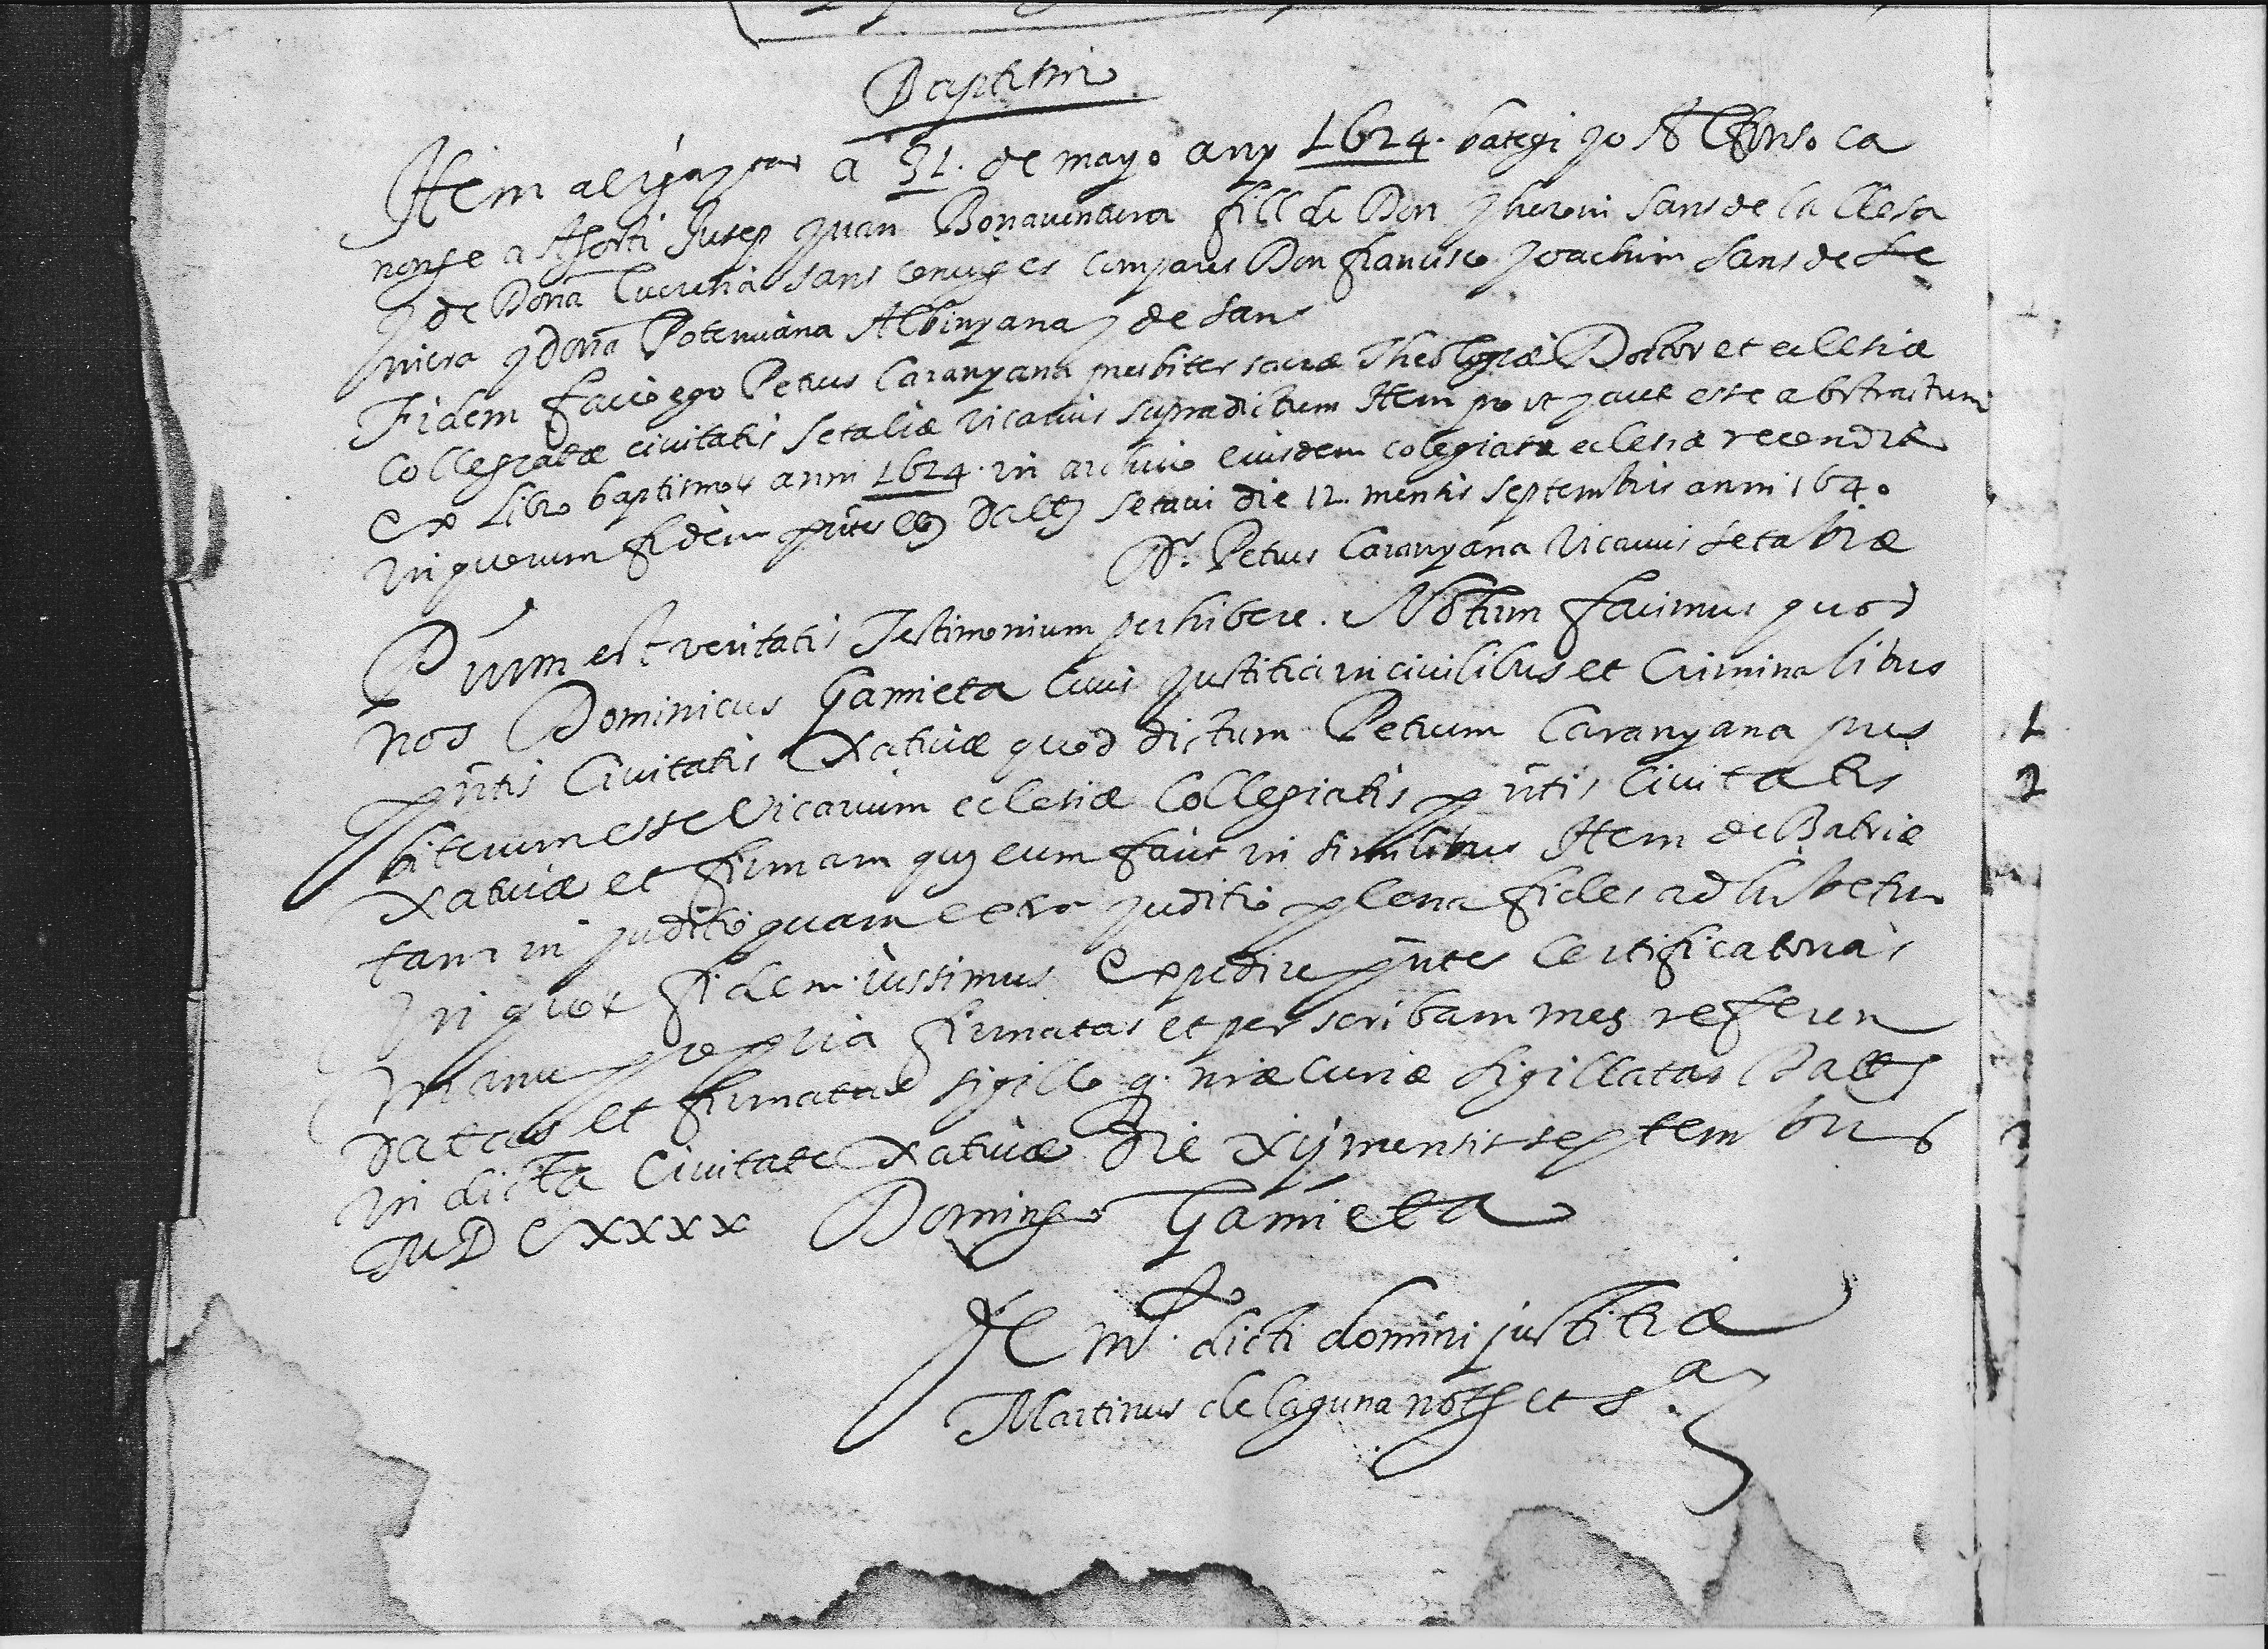 Baptism
Item a 31. de mayo any 1624. bategi yo Alfonso ca
nonge a Jusep Juan Bonaventura fill de Don Jheroni Sans de la Llosa
y de Dona Lucretia Sans conuges compares Don francisco Joachim Sans de Le
micra y dona Potenciana Albinyana y de Sans
Fidem facio ego Petrus Caranyana presbiter sacræ Theologiæ Doctor et eclesiæ
Collegiatæ civitatis Setabiæ vicarius supradictum Item prout jacet esse abstractum
ex Libro baptismor anni 1624. in archivio eiusdem colegiatæ eclesiæ recondito
in quorum fidem pntes dat Setavi die 12. mensis septembris anni 1640
Dr. Petrus Caranyana Vicarius Setabiæ
Pium est veritatis Testimonium perhibere. Notum facimus quod
nos Dominicus Gamieta Civis justitia in civilibus et Criminalibus
pntis Civitatis Xativæ quod dictum Petrum Caranyana pres
biterum esse Vicarium eclesiæ Collegiatis pntis Civitatis
Xativæ et firmam eum facit in similibus Item
tam in juditio quam extra juditio plena fides adhibetur
In quor fidem iussimus expedire pntes Certificatorias
manu propria firmatas et per scribam meg referen
datas et firmatas sigillo q. nræ Curiæ sigillatas Datt
in dicta Civitate Xativæ die xij mensis septembris
MDCXXXX Domingo Gamieta
De mto. dicti domini justitiæ
Martinus de laguna not et sa.
1
2